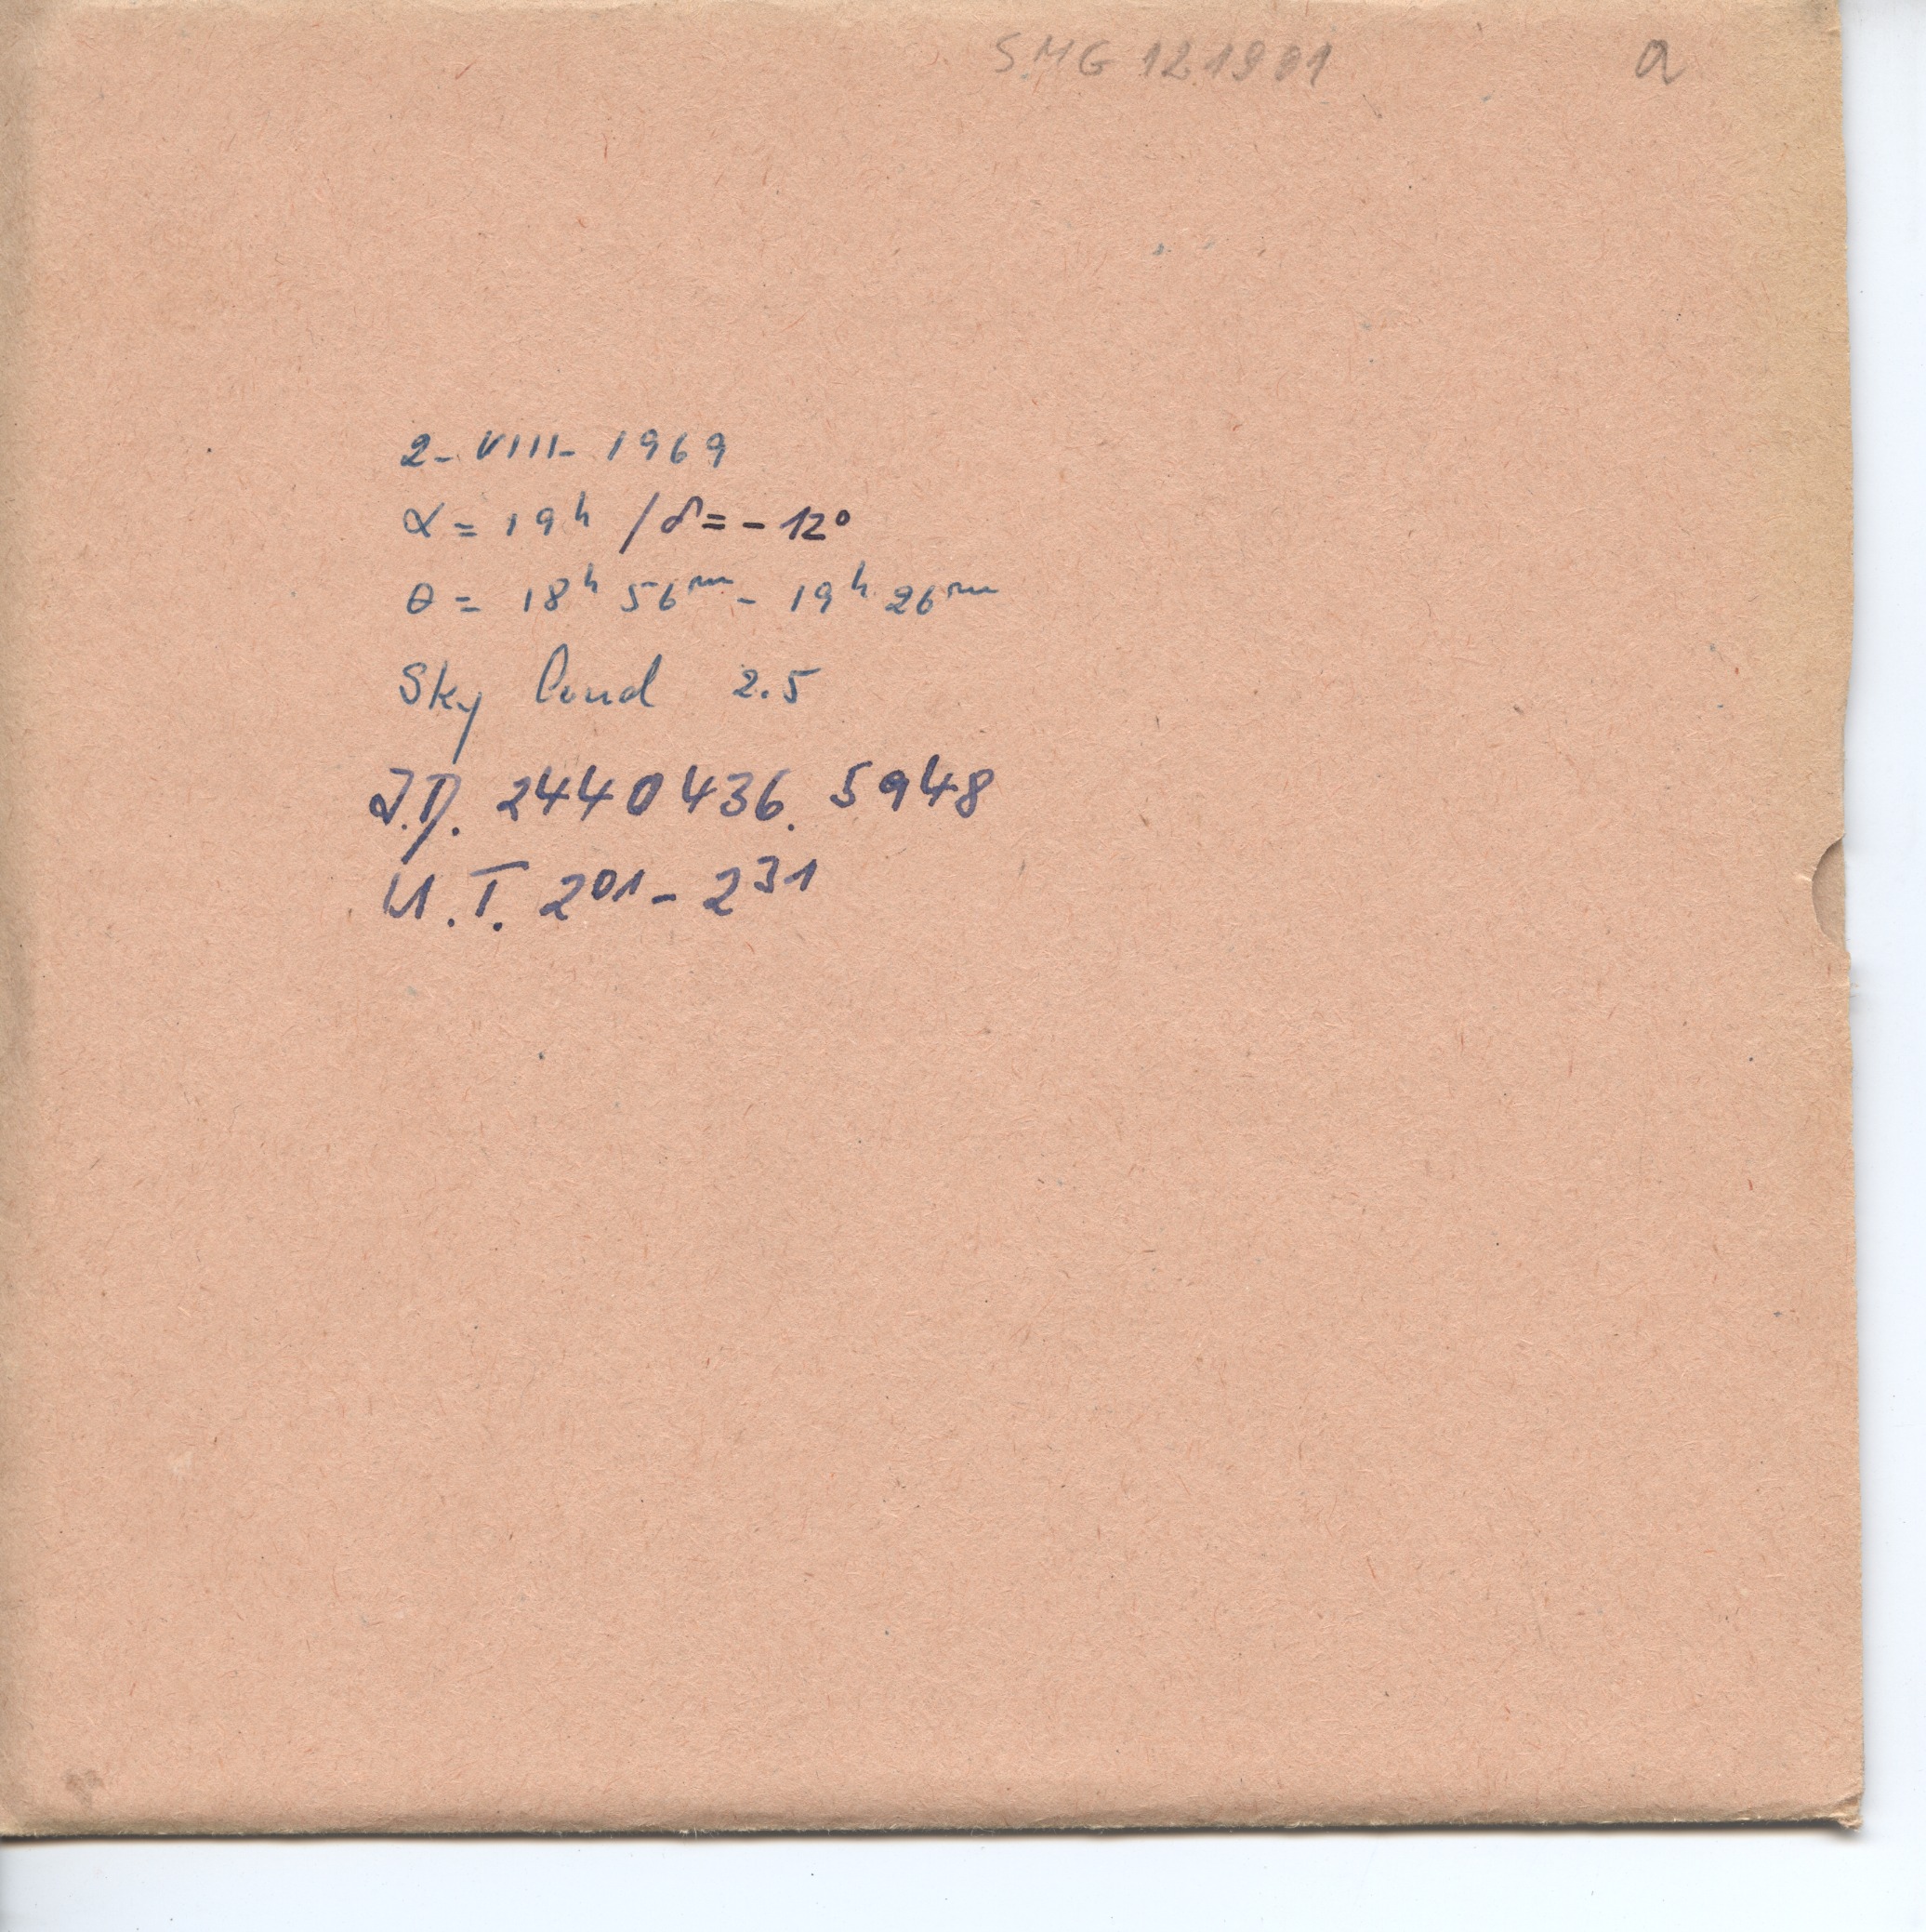 SMG 121901 a
2-VIII-1969
α = 19ʰ / δ = -12°
θ = 18ʰ 56ᵐ - 19ʰ 26ᵐ
Sky Cond 2.5
J.D. 2440436.5948
U.T. 2⁰¹ - 2³¹